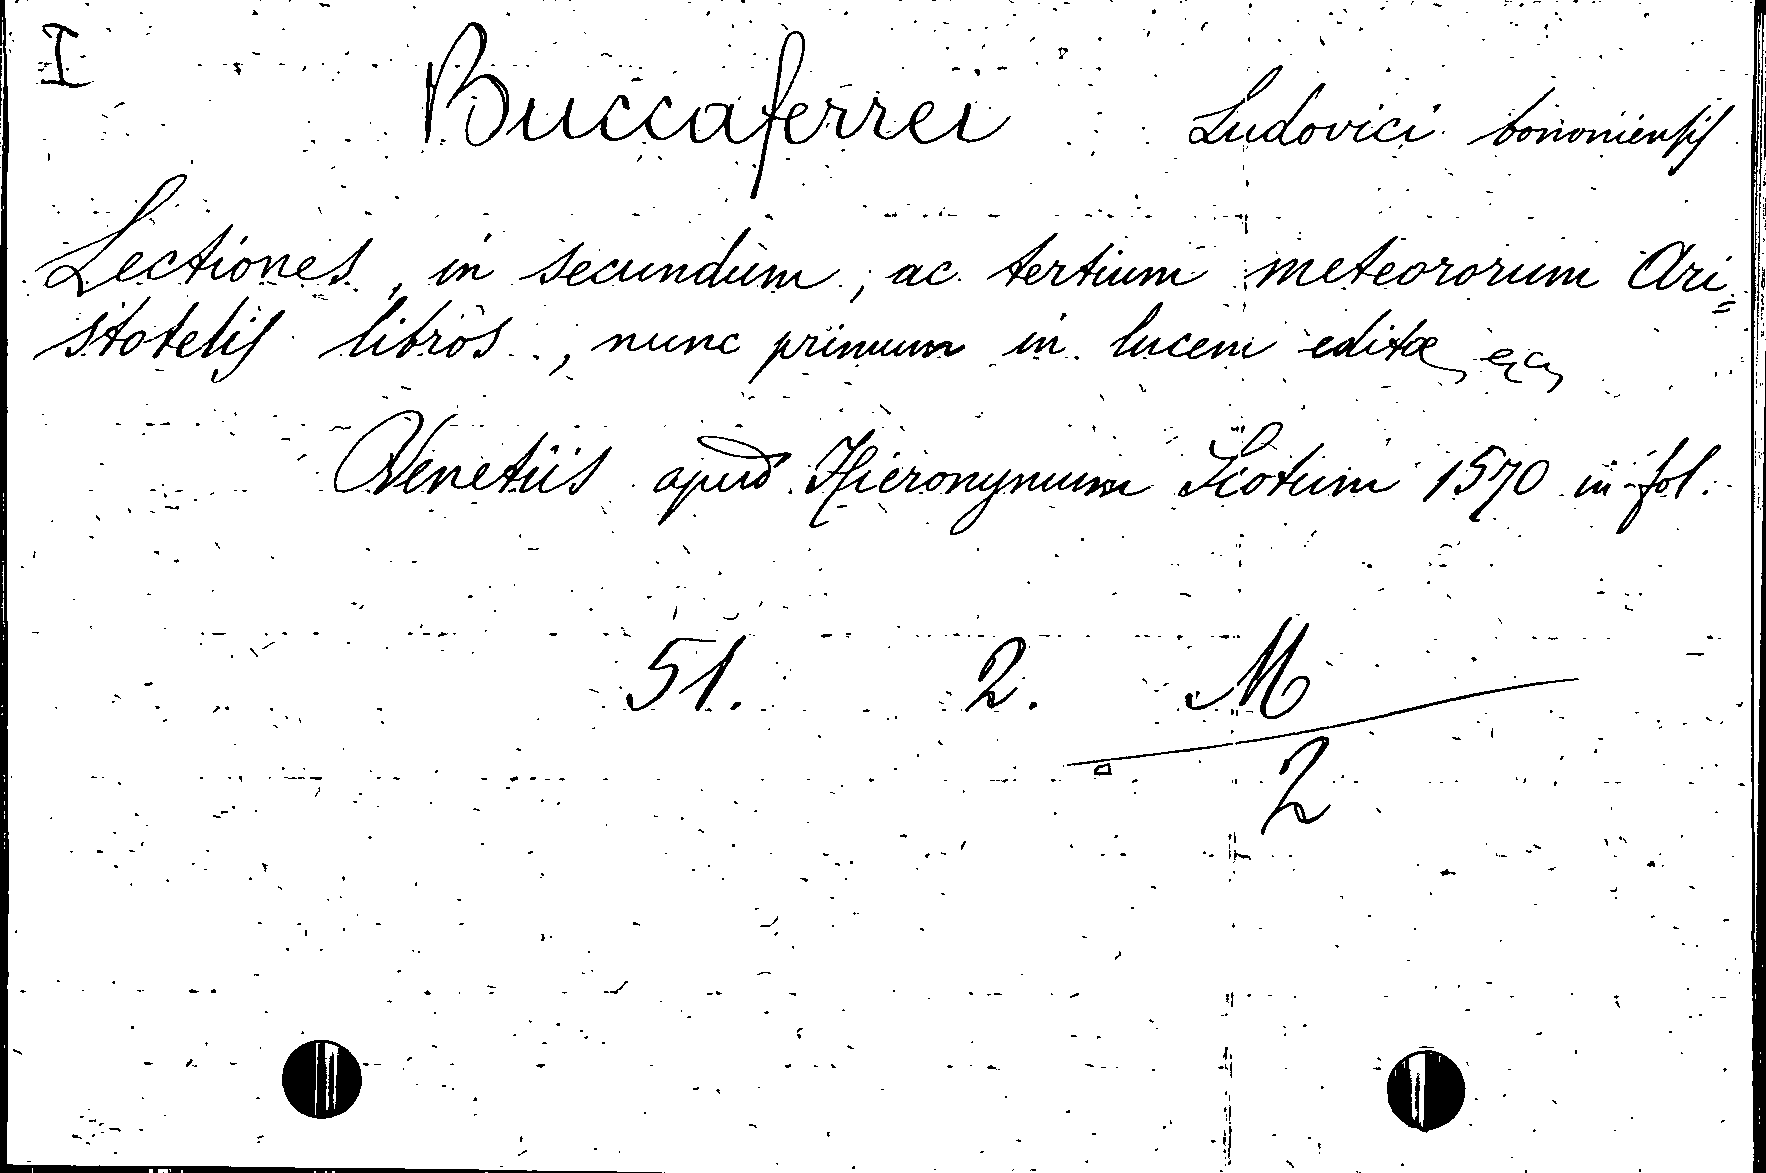 I
Buccaferrei Ludovici bononiensis
Lectiones, in secundum, ac tertium meteororum Ari=
stotelis libros, nunc primum in lucem editæ,
Venetiis apud Hieronymum Scotum 1570 in fol.
51. 2. M
2